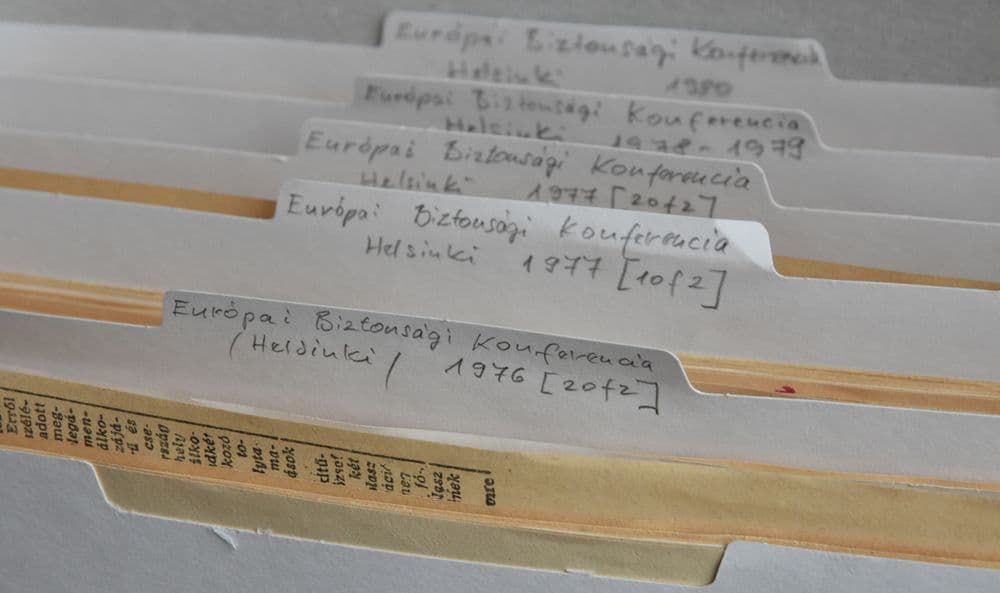 Európai Biztonsági Konferencia
Helsinki 1980
Európai Biztonsági Konferencia
Helsinki 1978-1979
Európai Biztonsági Konferencia
Helsinki 1977 [2of2]
Európai Biztonsági Konferencia
Helsinki 1977 [1of2]
Európai Biztonsági Konferencia
/Helsinki/ 1976 [2of2]
Erről
adott
meg-
legá-
men-
álko-
zájá-
és
cse-
rszág
hely
kozó
to-
lyta
ma-
ások
két
nen
fó-